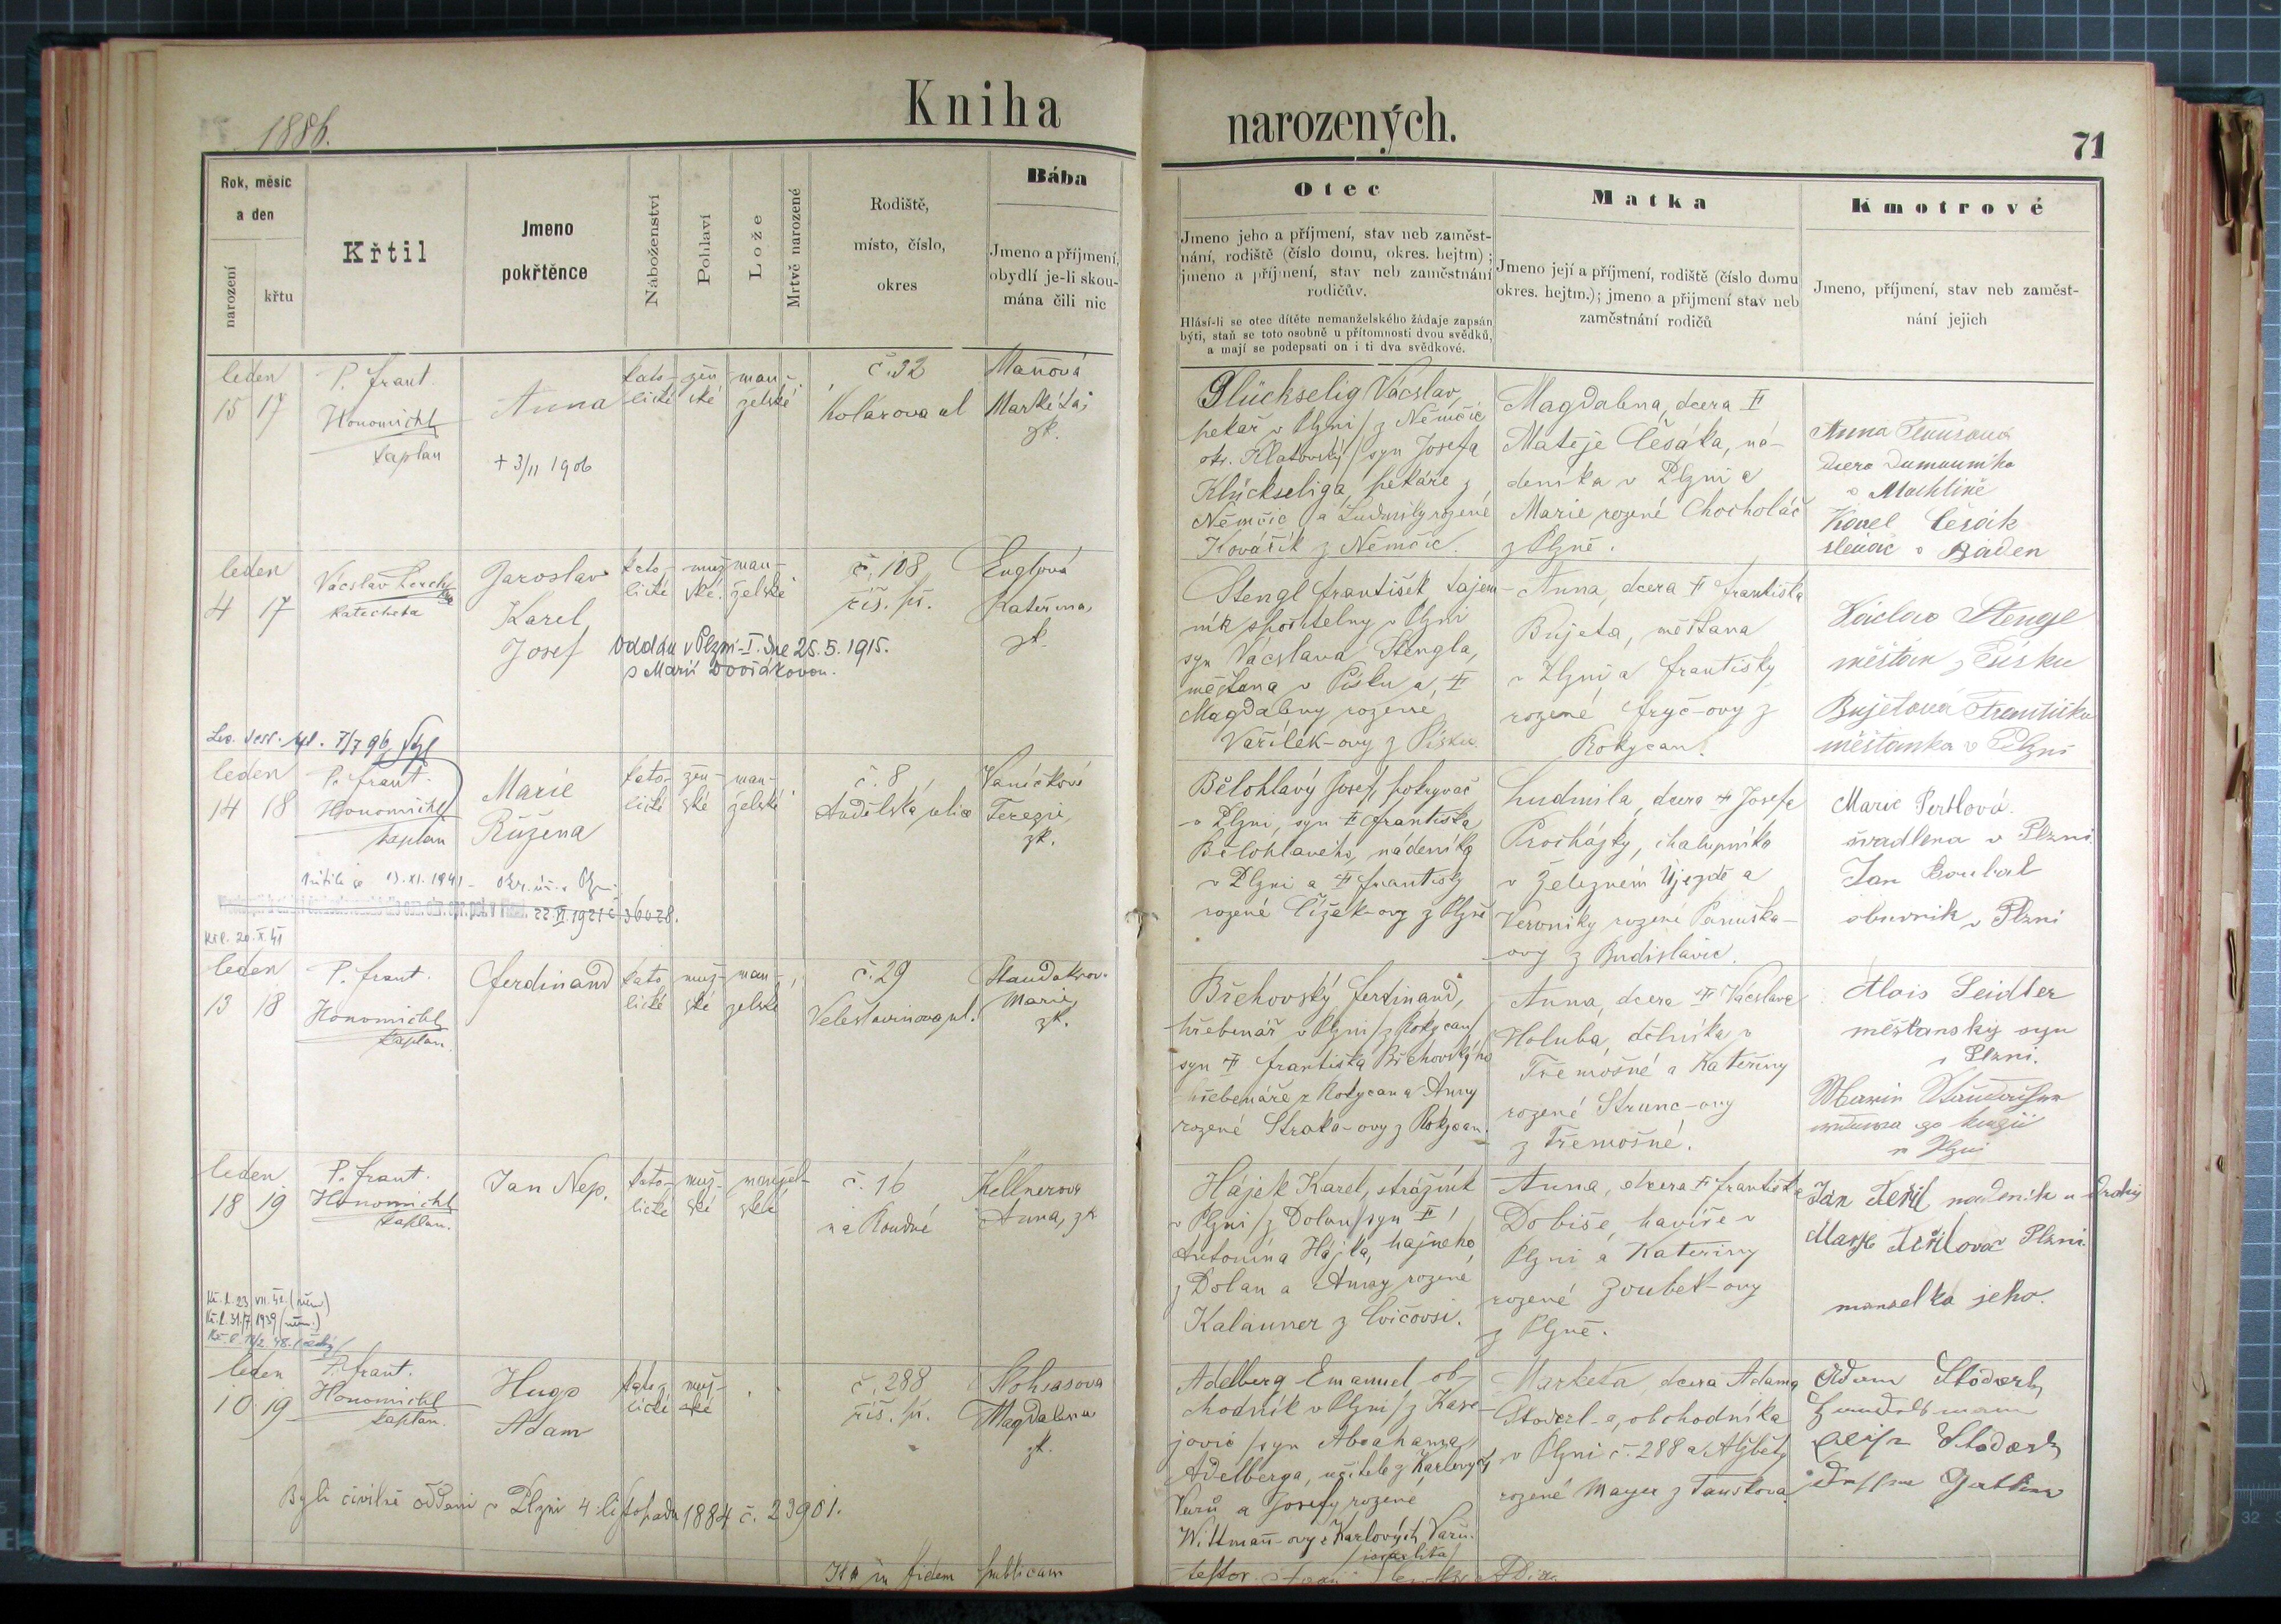 1886.
Kniha
narozených.
71
Rok, měsíc
a den
narození
křtu
Křtil
Jmeno
pokřtěnce
Náboženství
Pohlaví
Lože
Mrtvě narozené
Rodiště,
místo, číslo,
okres
Bába
Jmeno a příjmení,
obydlí je-li skou-
mána čili nic
Otec
Jmeno jeho a příjmení, stav neb zaměst-
nání, rodiště (číslo domu, okres. hejtm) ;
jmeno a příjmení, stav neb zaměstnání
rodičův.
Hlásí-li se otec dítěte nemanželského žádaje zapsán
býti, staň se toto osobně u přítomnosti dvou svědků,
a mají se podepsati on i ti dva svědkové.
Matka
Jmeno její a příjmení, rodiště (číslo domu
okres. hejtm.); jmeno a příjmení stav neb
zaměstnání rodičů
Kmotrové
Jmeno, příjmení, stav neb zaměst-
nání jejich
leden
15 17
P. Frant.
Honomichl
kaplan
Anna
+ 3/11 1906
kato-
lické
žen-
ské
man-
želské
č. 32
Kolárova ul
Maňová
Markéta,
zk.
Glückselig Václav,
pekař v Plzni / z Němčic
okr. Klatovský / syn Josefa
Klückseliga, pekáře z
Němčic a Ludmily rozené
Kovářík z Němčic.
Magdalena, dcera †
Matěje Češáka, ná-
deníka v Plzni a
Marie rozené Chocholáč
z Plzně.
Anna
dcera
v Mochtíně
Karel Češák
v Baden
leden
4 17
Václav
katecheta
Jaroslav
Karel
Josef
kato-
lické
muž-
ské
man-
želské
č. 108
říš. př.
Englová
Kateřina,
zk.
Oddán v Plzni-I. dne 25.5.1915.
s Marií Dvořákovou.
Stengl František, tajem-
ník spořitelny v Plzni
syn Václava Stengla,
měšťana v Písku a †
Magdaleny rozené
Vařílek-ovy z Písku.
Anna, dcera † Františka
Bujeta, měšťana
v Plzni a Františky
rozené Fryč-ovy z
Rokycan.
Václav Stengl
měšťan z Písku
Bujetova Františka
měšťanka v Plzni
7/7 96
leden
14 18
P. Frant.
Honomichl
kaplan
Marie
Růžena
kato-
lické
žen-
ské
man-
želské
č. 8
Andělská ulice
Vaníčková
Terezie,
zk.
13. XI. 1941
22. VI. 1921 č 36028.
Bělohlavý Josef, pokryvač
v Plzni, syn † Františka
Bělohlavého, nádeníka
v Plzni a † Františky
rozené Čížek-ovy z Plzně
Ludmila, dcera † Josefa
Procházky, chalupníka
v Železném Újezdě a
Veroniky rozené Panuška-
ovy z Budislavic.
Marie Pertlová.
švadlena v Plzni.
Jan Boubal
obuvník v Plzni
leden
13 18
P. Frant.
Honomichl
kaplan.
Ferdinand
kato
lické
muž-
ské
man-
želské
č. 29
Veleslavínova ul.
Marie,
zk.
Břehovský Ferdinand,
hřebenář v Plzni / z Rokycan /
syn † Františka Břehovského
hřebenáře z Rokycan a Anny
rozené Straka-ovy z Rokycan.
Anna, dcera † Václava
Holuba, dělníka v
Třemošné a Kateřiny
rozené Strunc-ovy
z Třemošné.
Alois Seidler
měšťanský syn
v Plzni.
v Plzni
leden
18 19
P. Frant.
Honomichl
kaplan.
Jan Nep.
kato-
lické
muž-
ské
manžel-
ské
č. 16
na Roudné
Kellnerova
Anna, zk
Hájek Karel, strážník
v Plzni / z Dolan / syn †
Antonína Hájka, hajného
z Dolan a Anny rozené
Kalauner z Lvičovsi.
Anna, dcera † Františka
Dobiše, havíře v
Plzni a Kateřiny
rozené Zoubek-ovy
z Plzně.
Jan nadenik u
v Plzni.
manzelka jeho.
Kř. l. 31/7 1939 (něm.)
leden
10 19
P. Frant.
Honomichl
kaplan.
Hugo
Adam
kato-
lické
muž-
ské
č. 288
říš. př.
Magdalena
zk.
Byli civilně oddani v Plzni 4 listopadu 1884 č. 23901.
Adelberg Emanuel ob-
chodník v Plzni / z Kase-
jovic / syn Abrahama
Adelberga, učitele z Karlových
Varů a Josefy rozené
Wittmañ-ovy z Karlových Varů.
/ israelita /
Marketa, dcera Adama
Stoderl-a, obchodníka
v Plzni č. 288 a Alžběty
rozené Mayer z Touškova.
Adam Stoderl
Stoderl
Ita in fidem publicam
testor